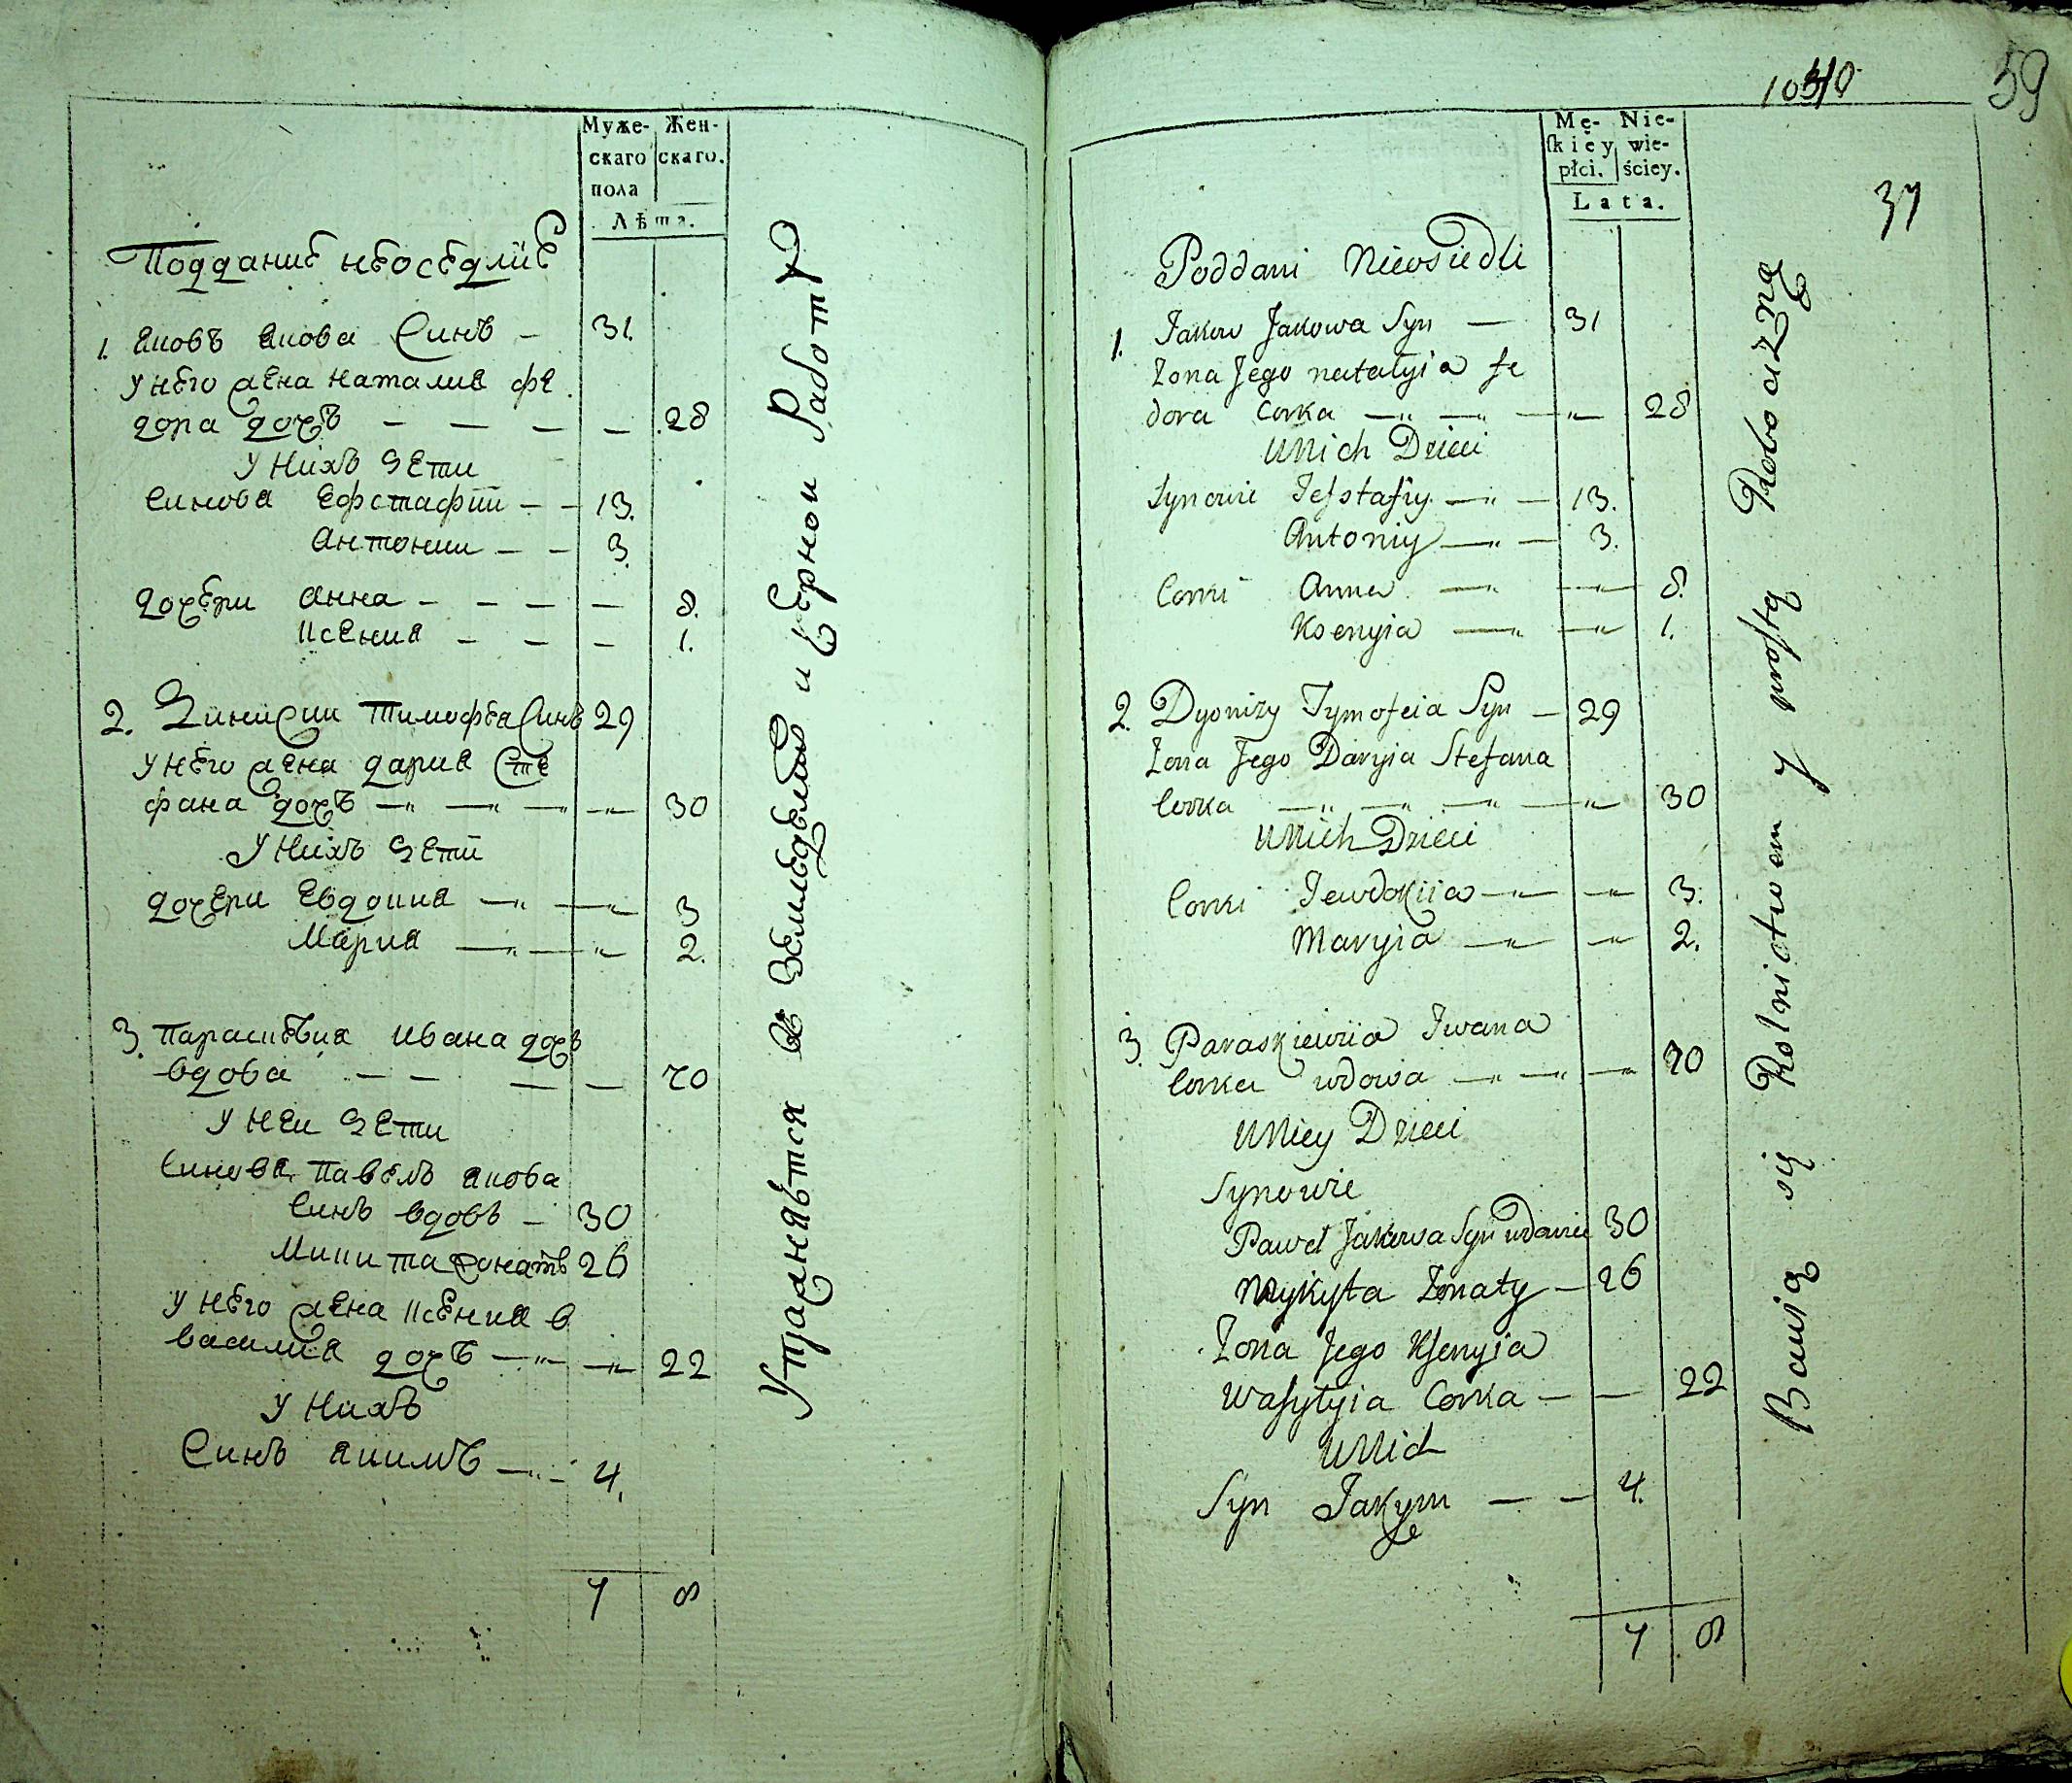 Муже- Жен-
скаго скаго.
пола
Лѣта.
Поддание неоседлие
1. Яковъ Якова Синъ — 31.
у него жена Наталия фе
дора дочъ — — — — 28
у нихъ дети
Синовя Ефстафий — — 13.
Антонии — — 3.
дочери Анна — — — — 8.
Ксения — — — 1.
2. Динисии Тимофея Синъ 29
у него жена Дария Сте
фана дочъ —"— —"— —"— 30
у нихъ дети
дочери Евдокия —"— —"— 3
Мария —"— —"— 2.
3. Параскевия Ивана дочъ
вдова — — — — 70
у неи дети
Синовя Павелъ Якова
Синъ вдовъ — 30
Микита жонатъ 26
у него жена Ксения в
василия дочъ —"— —"— 22
у нихъ
Синъ Якимъ —"— 4.
7 8
Упражняются в Земледелию и Черной Работѣ
59
37
Mę- Nie-
skiey wie-
płci. ściey.
Lata.
Poddani Nieosiedli
1. Jakow Jakowa Syn — 31
Zona Jego natalyia fe
dora Corka —"— —"— —"— 28
U Nich Dzieci
Synowie Jefstafiy —"— 13.
Antoniy —"— 3.
Corki Anna —"— —"— 8.
Ksenyia —"— —"— 1.
2. Dyonizy Tymofeia Syn — 29
Zona Jego Daryia Stefana
Corka —"— —"— —"— —"— 30
U Nich Dzieci
Corki Jewdokiia —"— —"— 3.
Maryia —"— —"— 2.
3. Paraskiewiia Iwana
Corka wdowa —"— —"— —"— 70
U Niey Dzieci
Synowie
Paweł Jakowa Syn wdowiec 30
Mykyta Zonaty — 26
Zona Jego Ksenyia
Wasylyia Corka — — 22
U Nich
Syn Jakym — — 4.
7 8
Bawią się Rolnictwem y prostą Robocizną